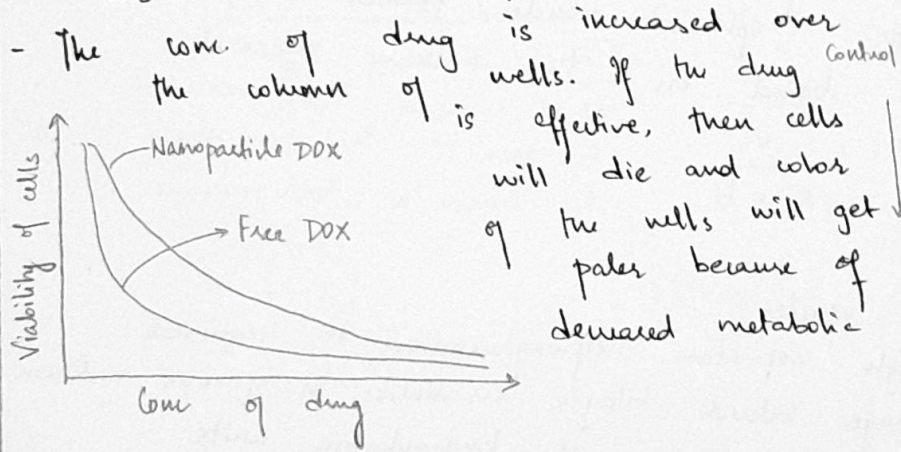 - The conc of drug is increased over
the column of wells. If the drug
is effective, then cells
will die and color
of the wells will get
paler because of
decreased metabolic
Control
Nanoparticle DOX
Free DOX
Viability of cells
Conc of drug